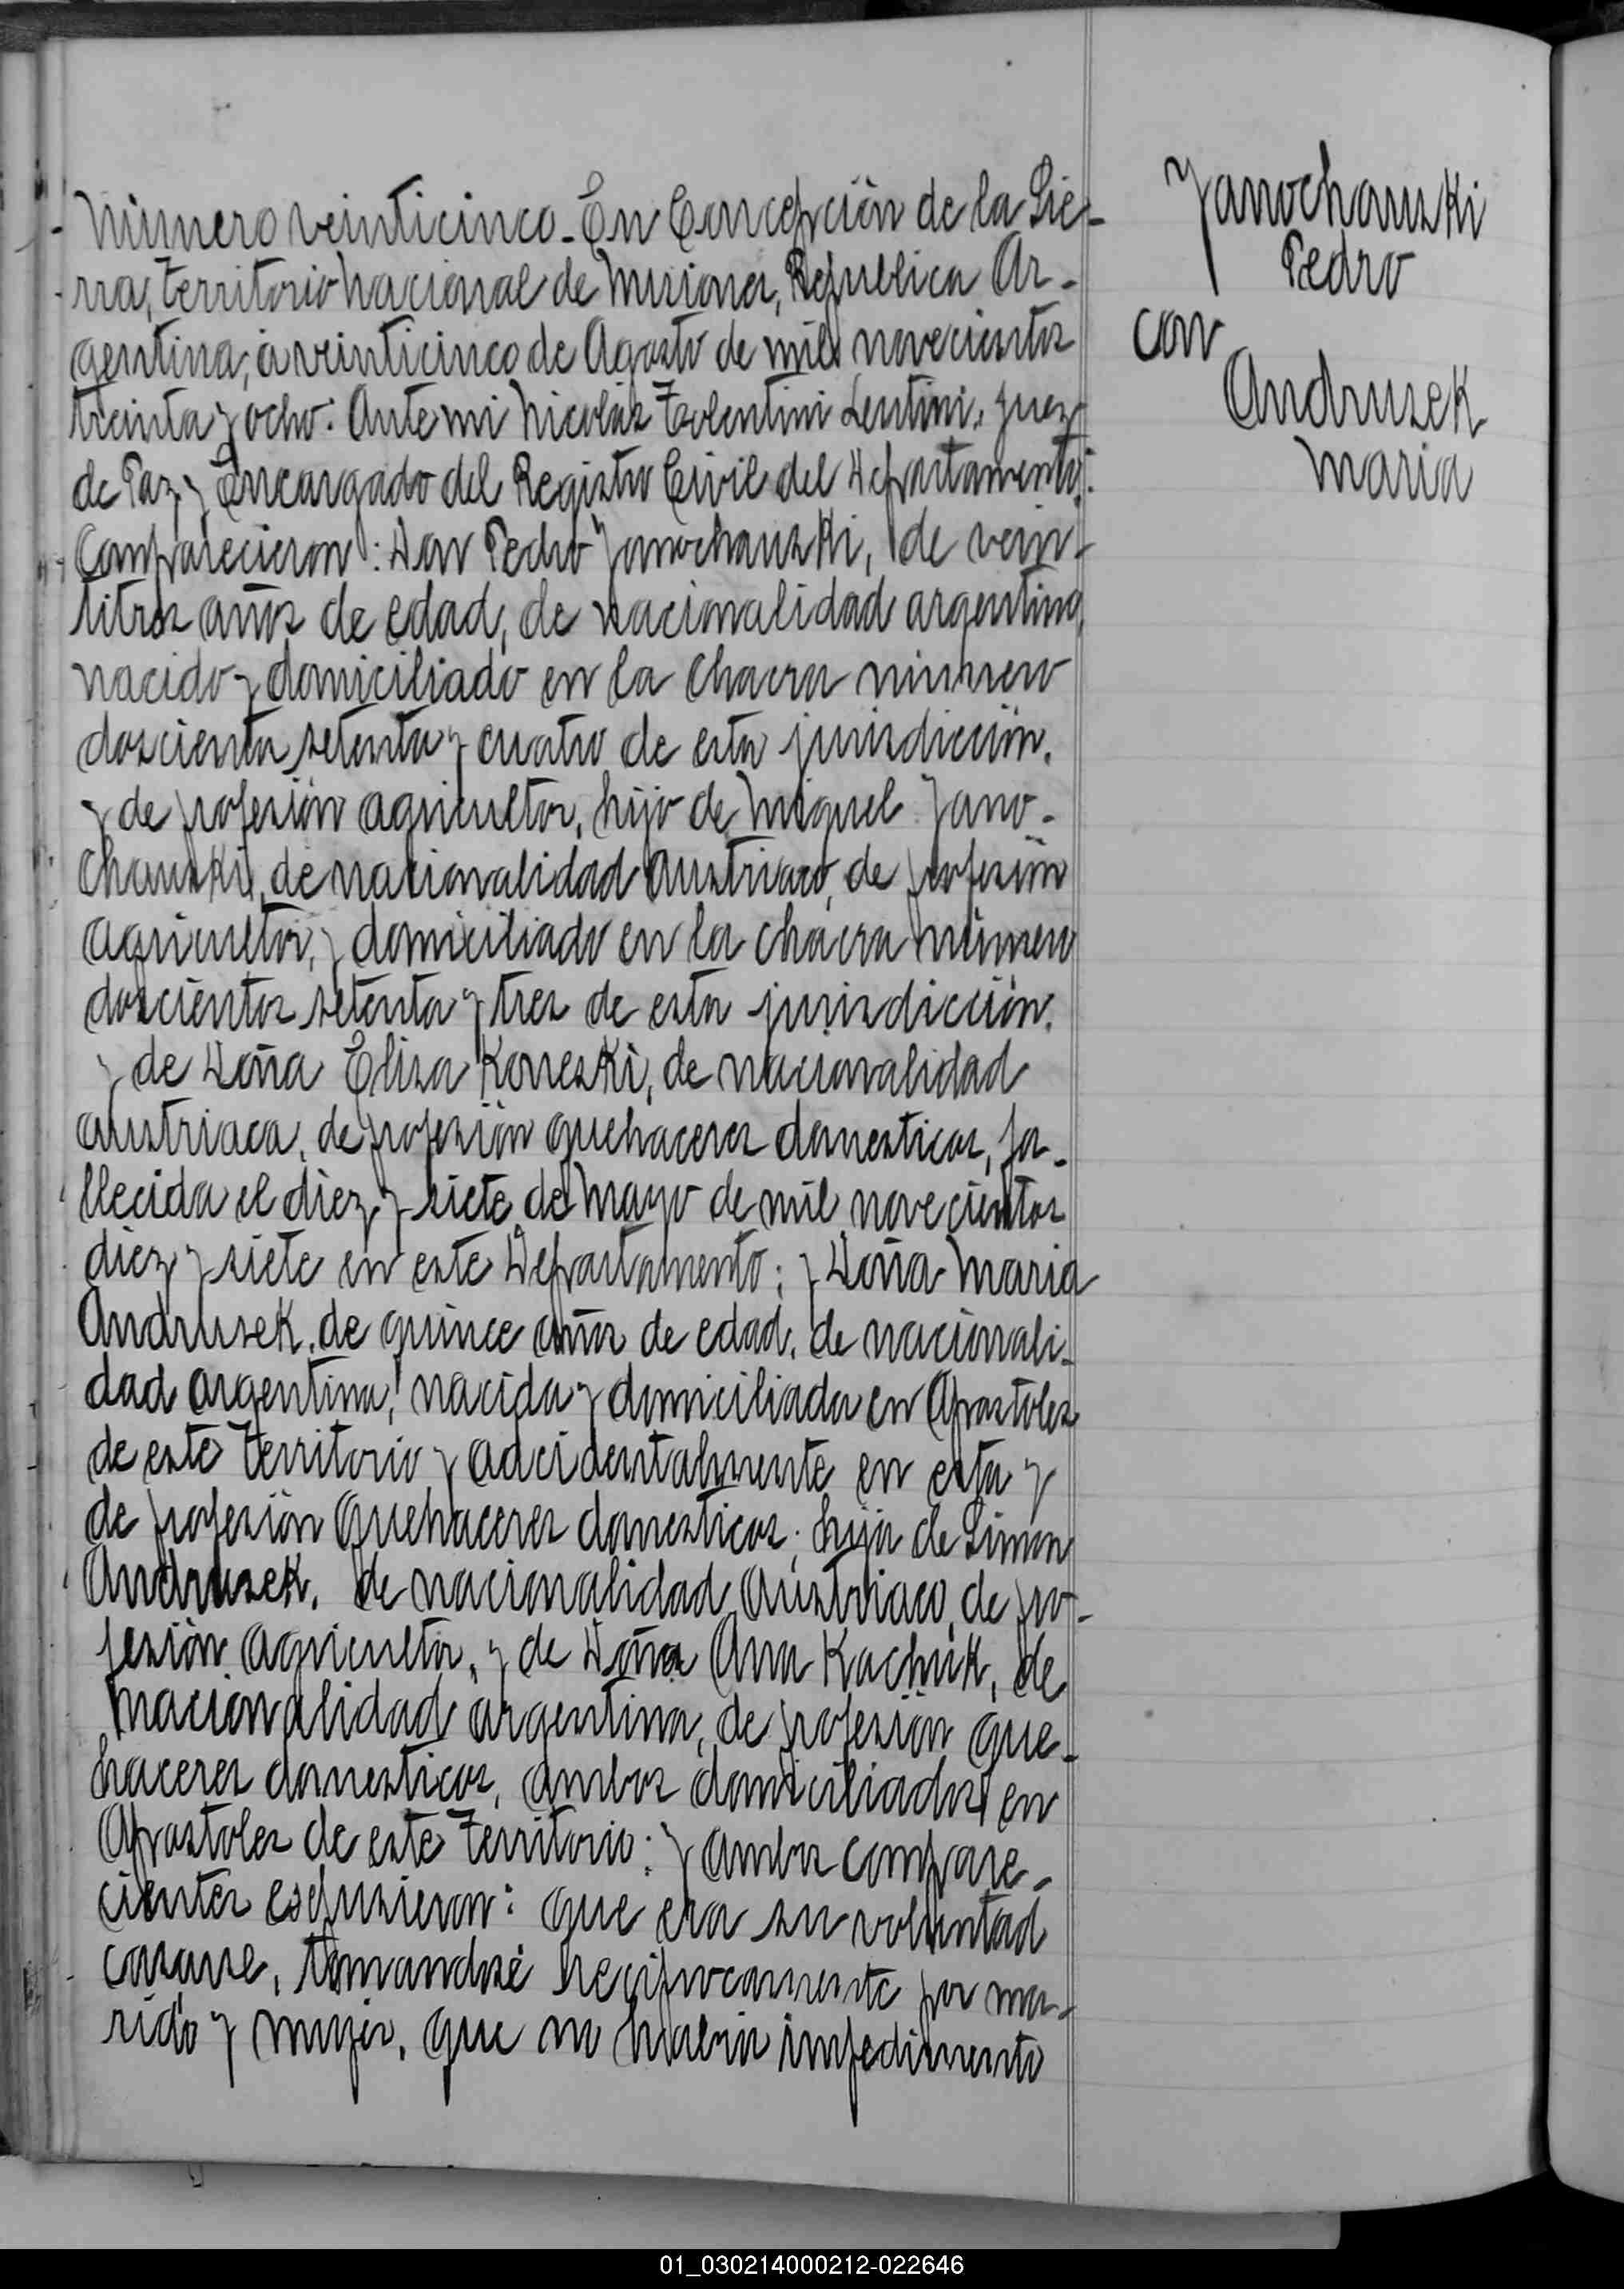 Número veinticinco. En Concepción de la Sie-
rra, territorio nacional de Misiones, República Ar-
gentina, a veinticinco de Agosto de mil novecientos
treinta y ocho: Ante mi Nicolás Tolentini Lentini, Juez
de Paz y Encargado del Registro Civil del Departamento:
Comparecieron: Don Pedro Yanochauski, de vein-
titres años de edad, de nacionalidad argentina,
nacido y domiciliado en la chacra número
doscientos setenta y cuatro de esta jurisdicción,
y de profesión agricultor, hijo de Miguel Yano-
chauski, de nacionalidad Austriaco, de profesión
agricultor, y domiciliado en la chacra número
doscientos setenta y tres de esta jurisdicción,
y de Doña Elisa Koneski, de nacionalidad
austriaca, de profesión quehaceres domesticos, fa-
llecida el diez y siete de Mayo de mil novecientos
diez y siete en este Departamento; y Doña Maria
Andrusek, de quince años de edad, de nacionali-
dad argentina, nacida y domiciliada en Apostoles
de este territorio y adcidentalmente en esta y
de profesión quehaceres domesticos; hija de Simon
Andrusek, de nacionalidad Austriaco, de pro-
fesión agricultor, y de Doña Ana Kachuk, de
nacionalidad argentina, de profesión que-
haceres domesticos, ambos domiciliados en
Apostoles de este territorio: y ambos compare-
cientes espusieron: que era su voluntad
casarse, tomandose reciprocamente por ma-
rido y mujer, que no habia impedimento
Yanochauski
Pedro
con
Andrusek
Maria
01_030214000212-022646